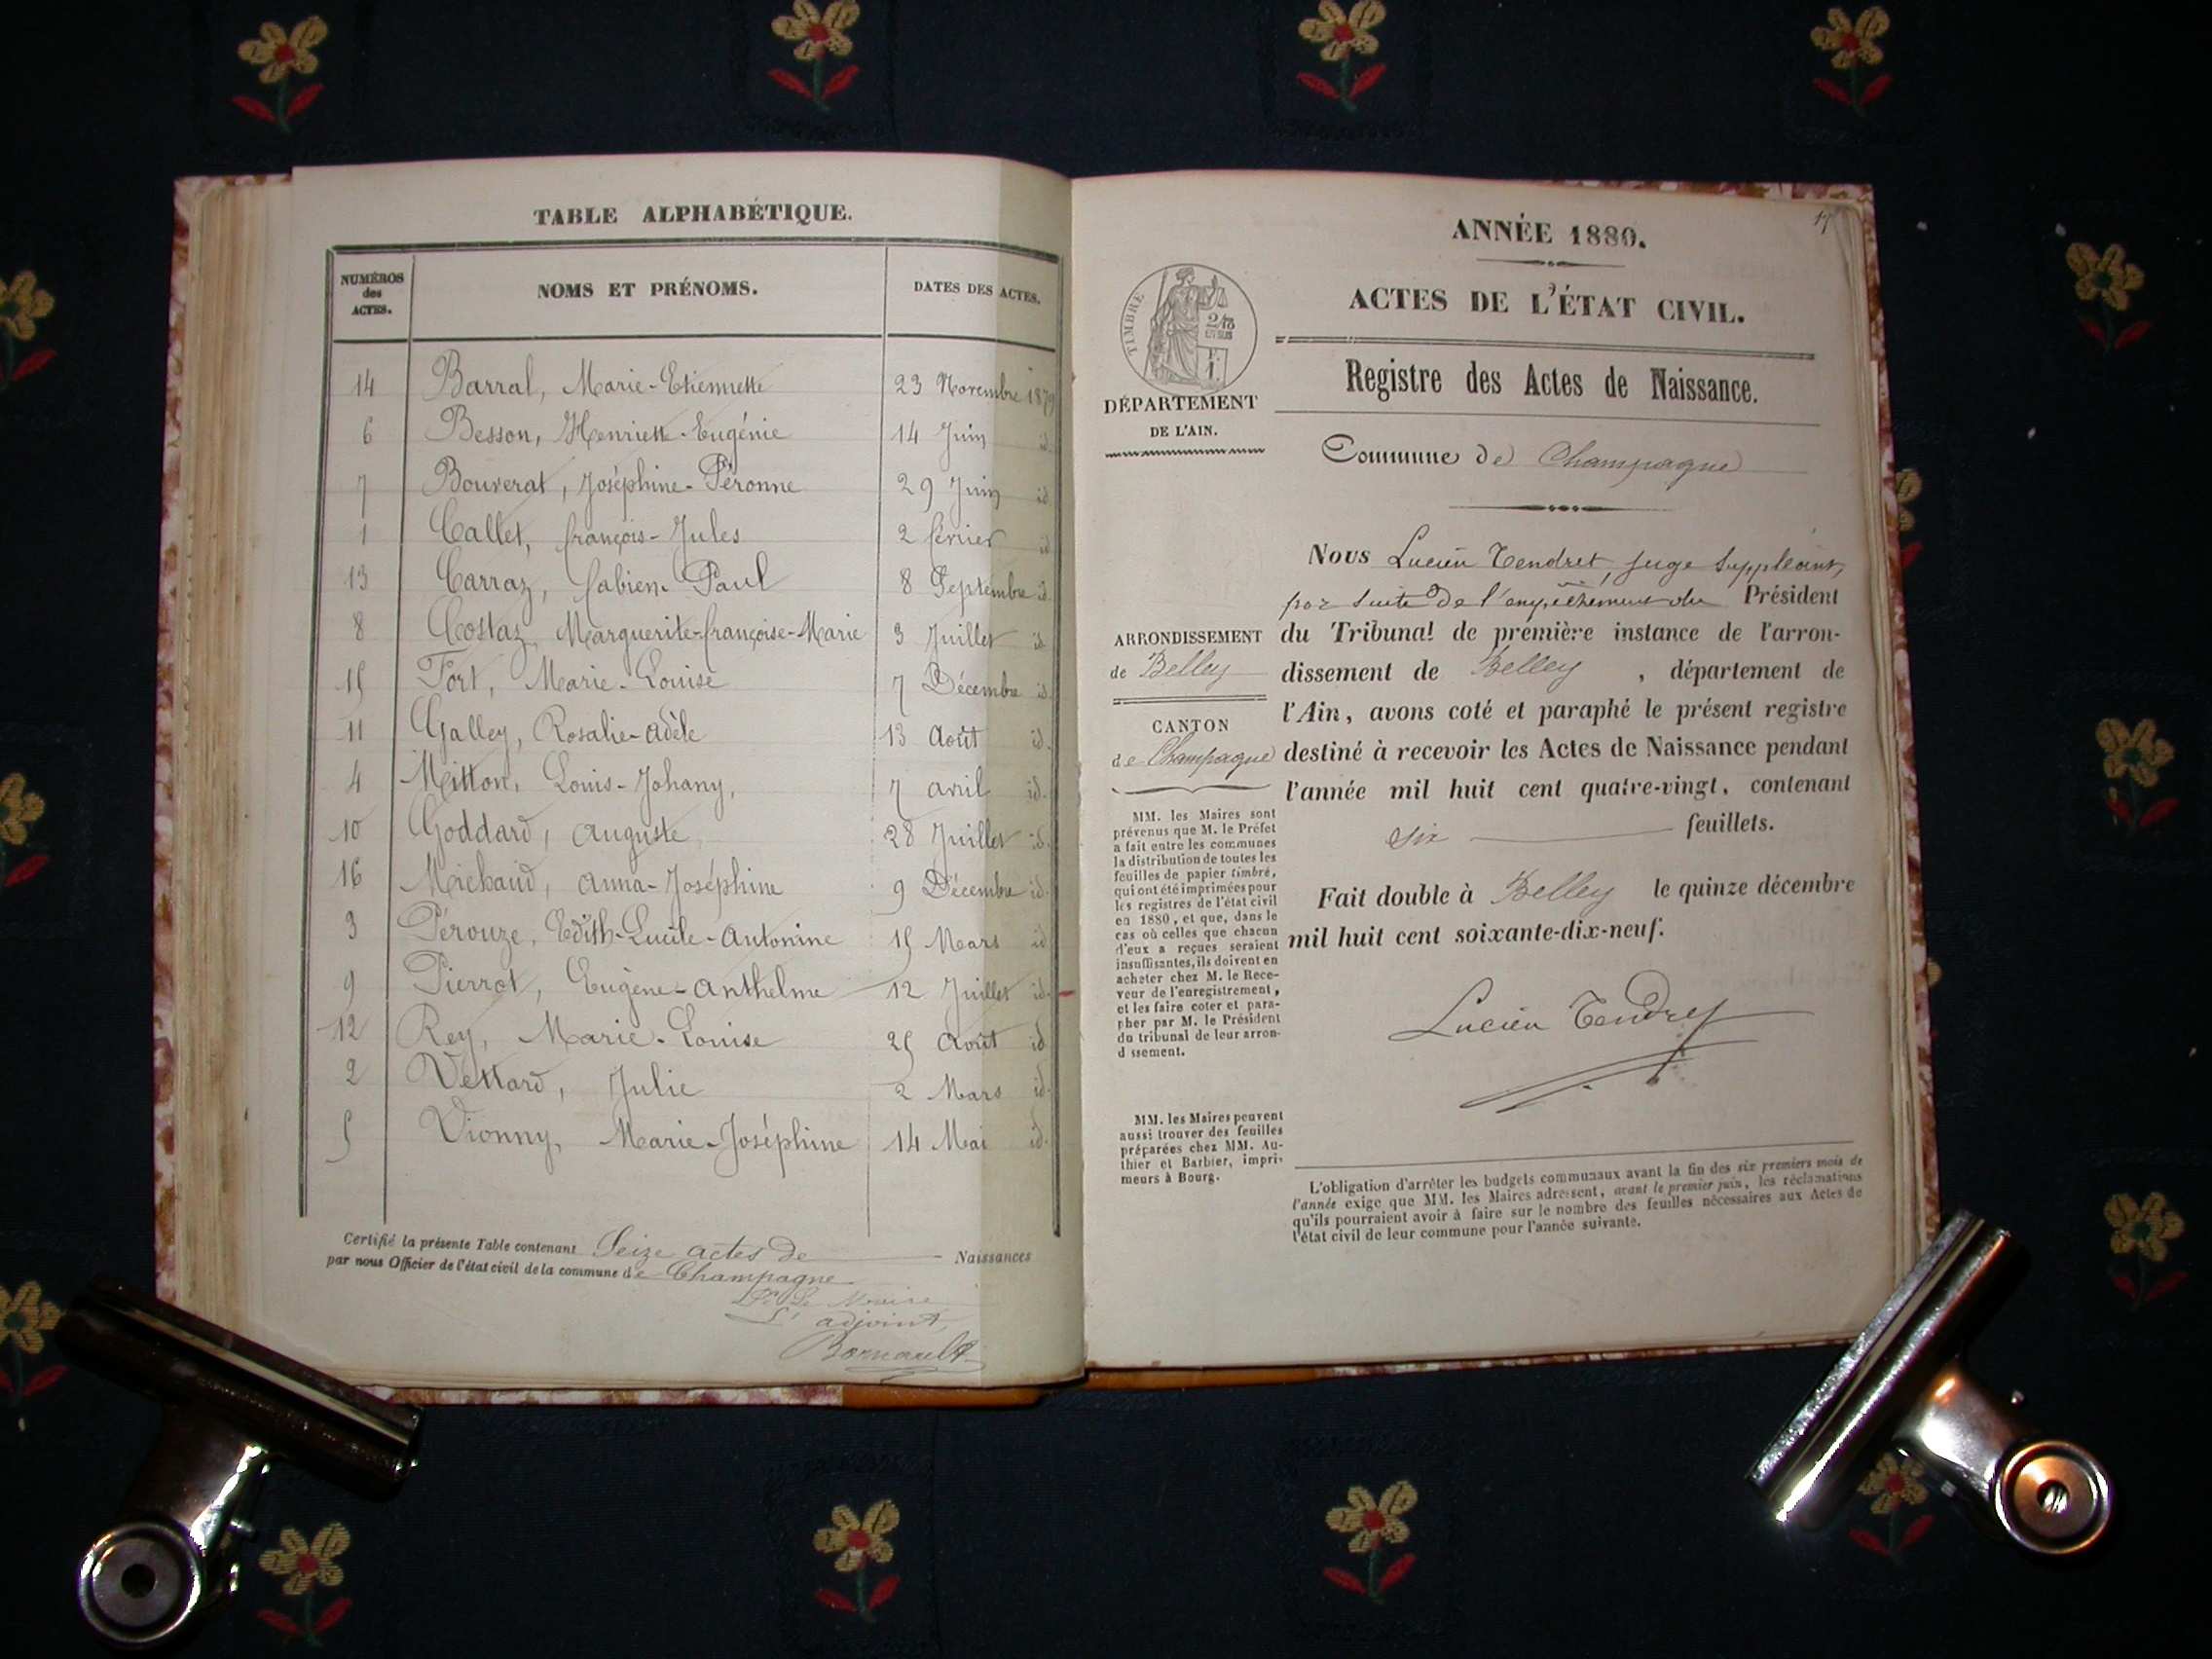 TABLE ALPHABÉTIQUE.
NUMÉROS des ACTES. NOMS ET PRÉNOMS. DATES DES ACTES.
14 Barral, Marie-Etiennette 23 Novembre 1879
6 Besson, Henriette-Eugénie 14 Juin id.
7 Bouverat, Joséphine-Péronne 29 Juin id.
1 Callet, françois-Jules 2 février id
13 Carraz, fabien-Paul 8 Septembre id.
8 Costaz, Marguerite-françoise-Marie 3 Juillet id
15 Fort, Marie-Louise 7 Décembre id.
11 Galley, Rosalie-adèle 13 Août id.
4 Mitton, Louis-Johany, 7 avril id.
10 Goddard, auguste 28 Juillet id.
16 Michaud, anna-Joséphine 9 Décembre id.
3 Pérouze, Edith-Lucile-antonine 15 Mars id
9 Pierrot, Eugène-anthelme 12 Juillet id.
12 Rey, Marie-Louise 25 Août id
2 Vettard, Julie 2 Mars id.
5 Vionny, Marie-Joséphine 14 Mai id.
Certifié la présente Table contenant Seize actes de Naissances
par nous Officier de l'état civil de la commune de Champagne
Pr Le Maire
L'adjoint,
Bornault
17
ANNÉE 1880.
ACTES DE L'ÉTAT CIVIL.
Registre des Actes de Naissance.
Commune de Champagne
TIMBRE
DÉPARTEMENT
DE L'AIN.
ARRONDISSEMENT
de Belley
CANTON
de Champagne
MM. les Maires sont
prévenus que M. le Préfet
a fait entre les communes
la distribution de toutes les
feuilles de papier timbré,
qui ont été imprimées pour
les registres de l'état civil
en 1880, et que, dans le
cas où celles que chacun
d'eux a reçues seraient
insuffisantes, ils doivent en
acheter chez M. le Rece-
veur de l'enregistrement,
et les faire coter et para-
pher par M. le Président
du tribunal de leur arron-
d ssement.
MM. les Maires peuvent
aussi trouver des feuilles
préparées chez MM. Au-
thier et Barbier, impri-
meurs à Bourg.
Nous Lucien Tendret, juge Suppléant,
par suite de l'empêchement du Président
du Tribunal de première instance de l'arron-
dissement de Belley, département de
l'Ain, avons coté et paraphé le présent registre
destiné à recevoir les Actes de Naissance pendant
l'année mil huit cent quatre-vingt, contenant
six feuillets.
Fait double à Belley le quinze décembre
mil huit cent soixante-dix-neuf.
Lucien Tendret
L'obligation d'arrêter les budgets communaux avant la fin des six premiers mois de
l'année exige que MM. les Maires adressent, avant le premier juin, les réclamations
qu'ils pourraient avoir à faire sur le nombre des feuilles nécessaires aux Actes de
l'état civil de leur commune pour l'année suivante.